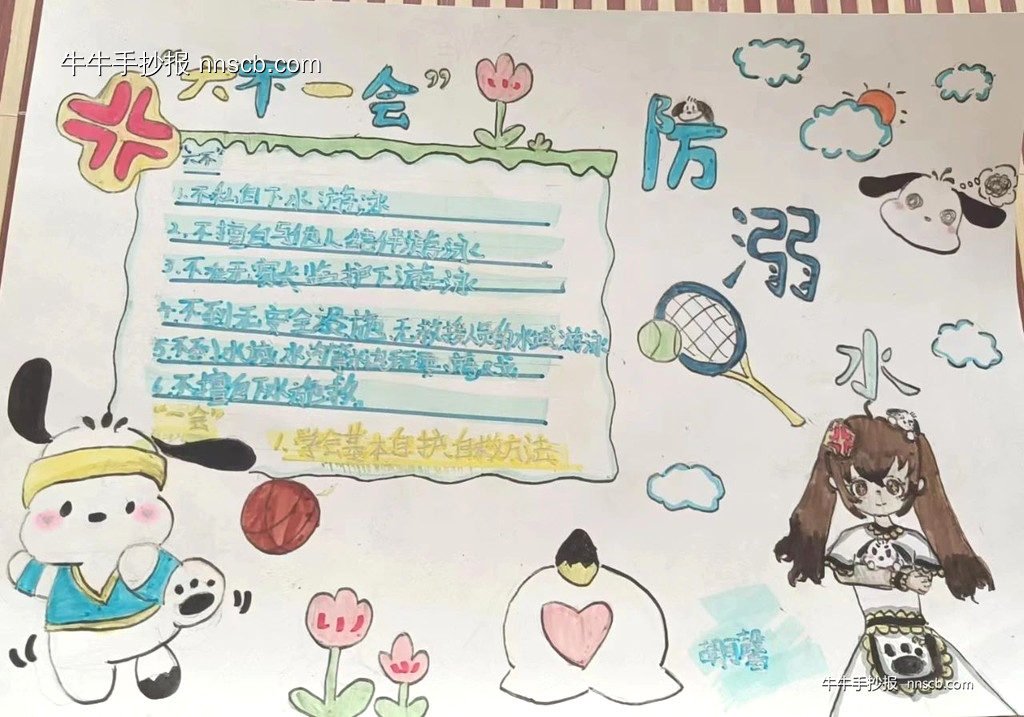 牛牛手抄报 nnscb.com
“六不一会”
防
溺
水
六不
1.不私自下水游泳
2.不擅自与他人结伴游泳
3.不在无家长监护下游泳
4.不到无安全设施、无救援人员的水域游泳
6.不擅自下水施救
“一会”
1.学会基本自护、自救方法
牛牛手抄报 nnscb.com